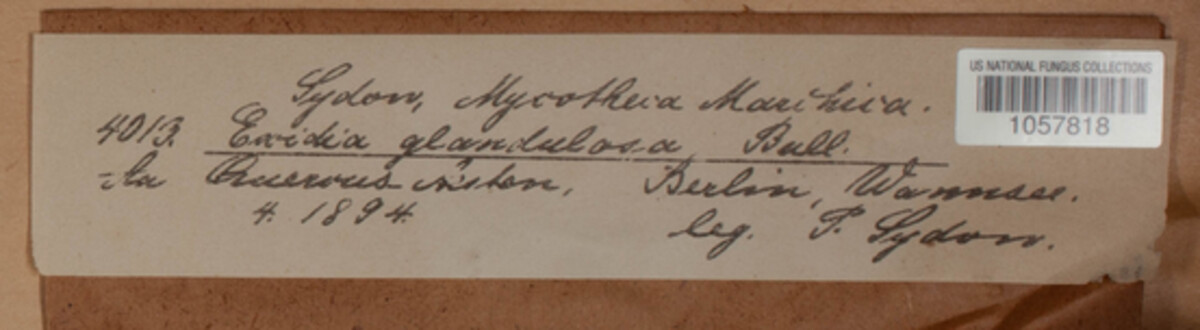 US NATIONAL FUNGUS COLLECTIONS
1057818
Sydow, Mycotheca Marchica.
4013. Exidia glandulosa Bull.
An Quercus Ästen, Berlin, Wannsee.
4. 1894.
leg. P. Sydow.